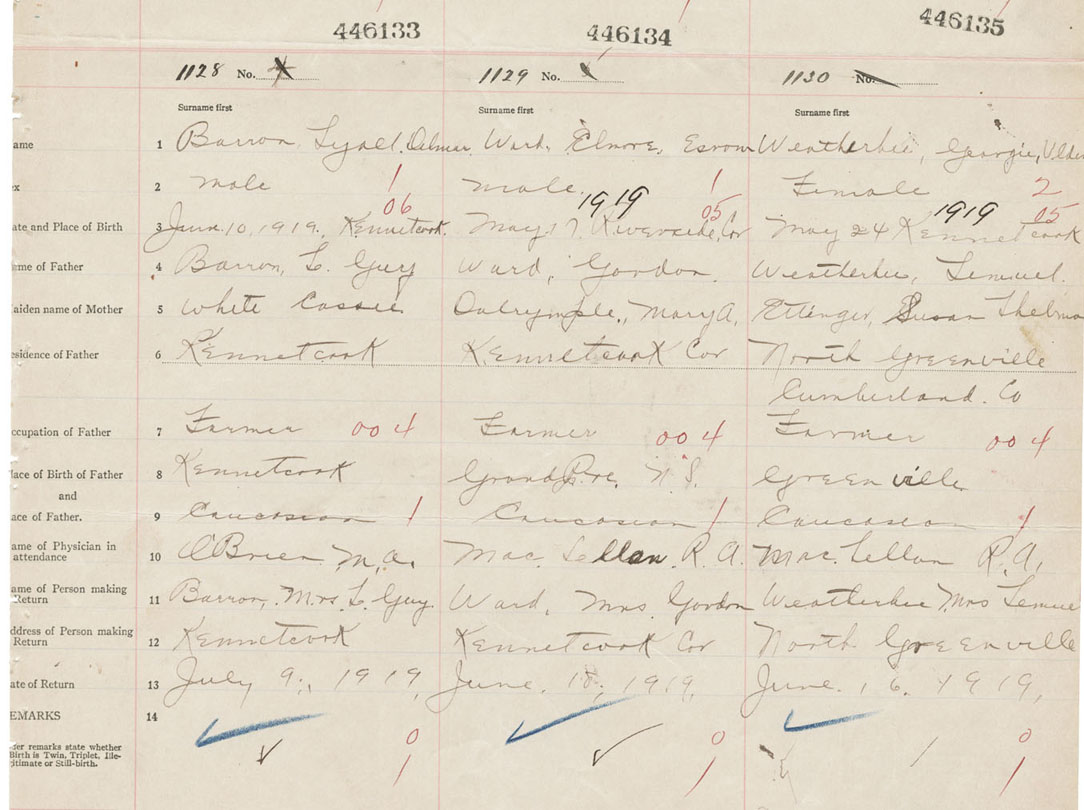 446133 446134 446135
1128 No. 1129 No. 1130 No.
Surname first Surname first Surname first
ame 1 Barron, Lyall, Delmar Ward, Elmore, Esrom Weatherbie, Georgie, Velda
ex 2 male 1 male 1 Female 2
06 1919 05 1919 05
ate and Place of Birth 3 June 10, 1919, Kennetcook May 17 Riverside Cor May 24 Kennetcook
ame of Father 4 Barron, L. Guy Ward, Gordon Weatherbie, Lemuel
aiden name of Mother 5 White Cassie Dalrymple, Mary A. Ettinger, Susan Thelma
esidence of Father 6 Kennetcook Kennetcook Cor North Greenville
Cumberland. Co
ccupation of Father 7 Farmer 00 4 Farmer 00 4 Farmer 00 4
lace of Birth of Father 8 Kennetcook Grand Pre, N.S. Greenville
and
ace of Father. 9 Caucasian 1 Caucasian 1 Caucasian 1
ame of Physician in
attendance 10 O'Brien M.A. Mac Lellan R.A. Mac Lellan R.A.
ame of Person making
Return 11 Barron, Mrs L. Guy Ward, Mrs Gordon Weatherbie Mrs Lemuel
ddress of Person making
Return 12 Kennetcook Kennetcook Cor North Greenville
ate of Return 13 July 9, 1919, June. 18, 1919, June. 16. 1919,
EMARKS 14
der remarks state whether 0 0 0
Birth is Twin, Triplet, Ille-
gitimate or Still-birth. 1 1 1